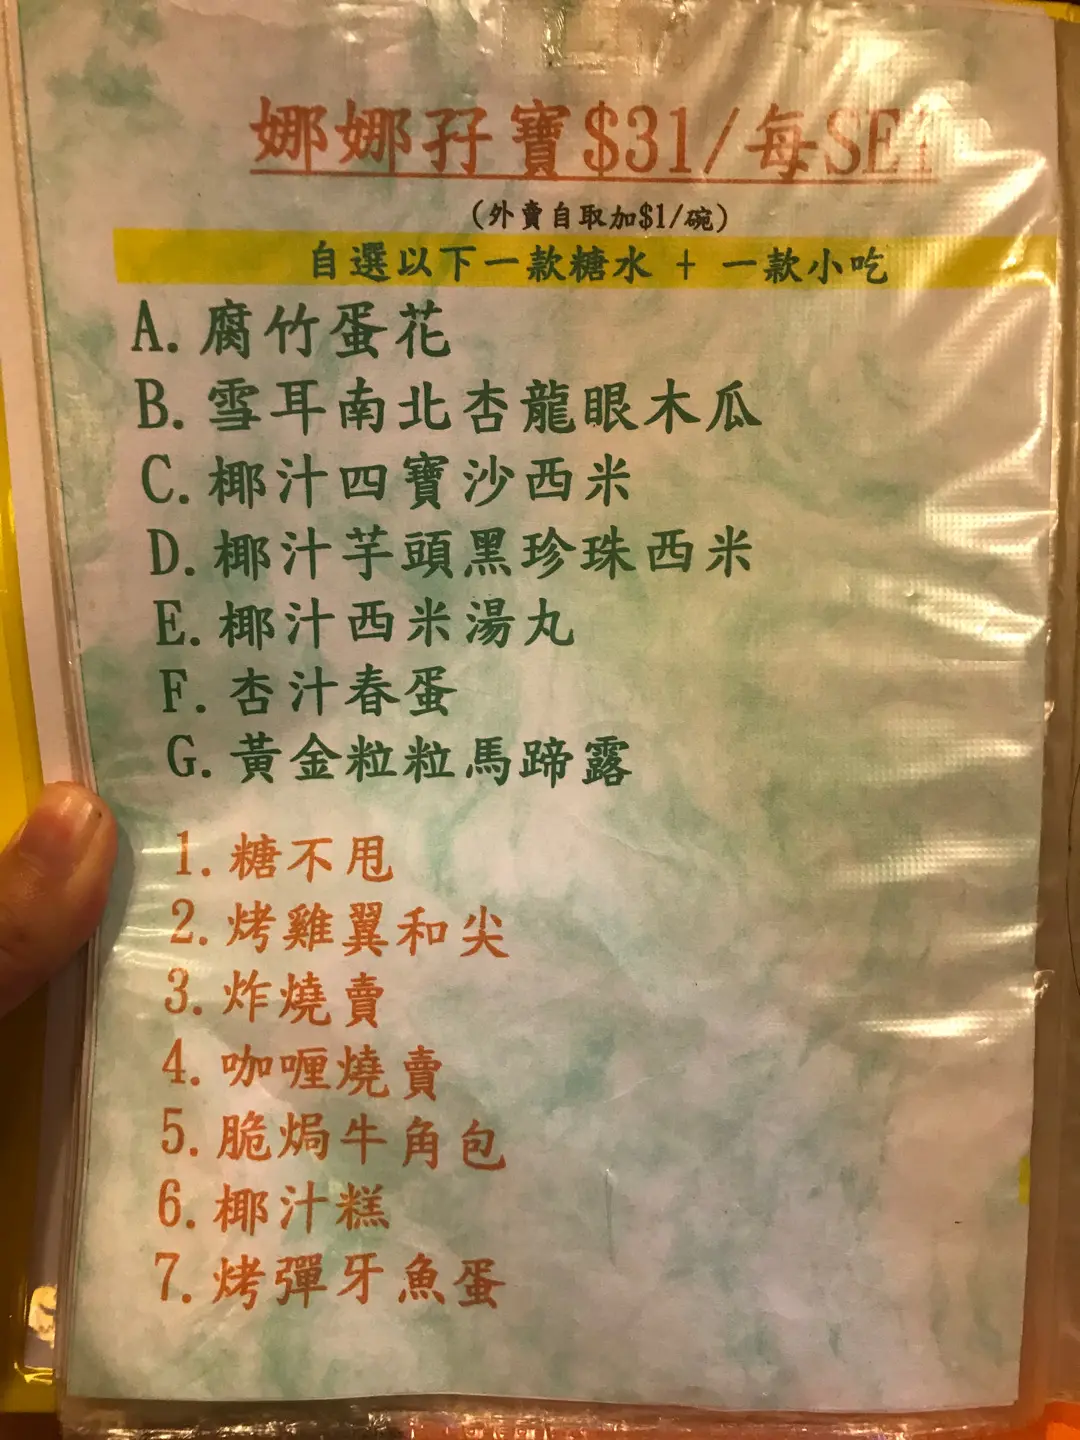 娜娜孖寶$31/每SET
(外賣自取加$1/碗)
自選以下一款糖水 + 一款小吃
A. 腐竹蛋花
B. 雪耳南北杏龍眼木瓜
C. 椰汁四寶沙西米
D. 椰汁芋頭黑珍珠西米
E. 椰汁西米湯丸
F. 杏汁春蛋
G. 黃金粒粒馬蹄露
1. 糖不甩
2. 烤雞翼和尖
3. 炸燒賣
4. 咖喱燒賣
5. 脆焗牛角包
6. 椰汁糕
7. 烤彈牙魚蛋